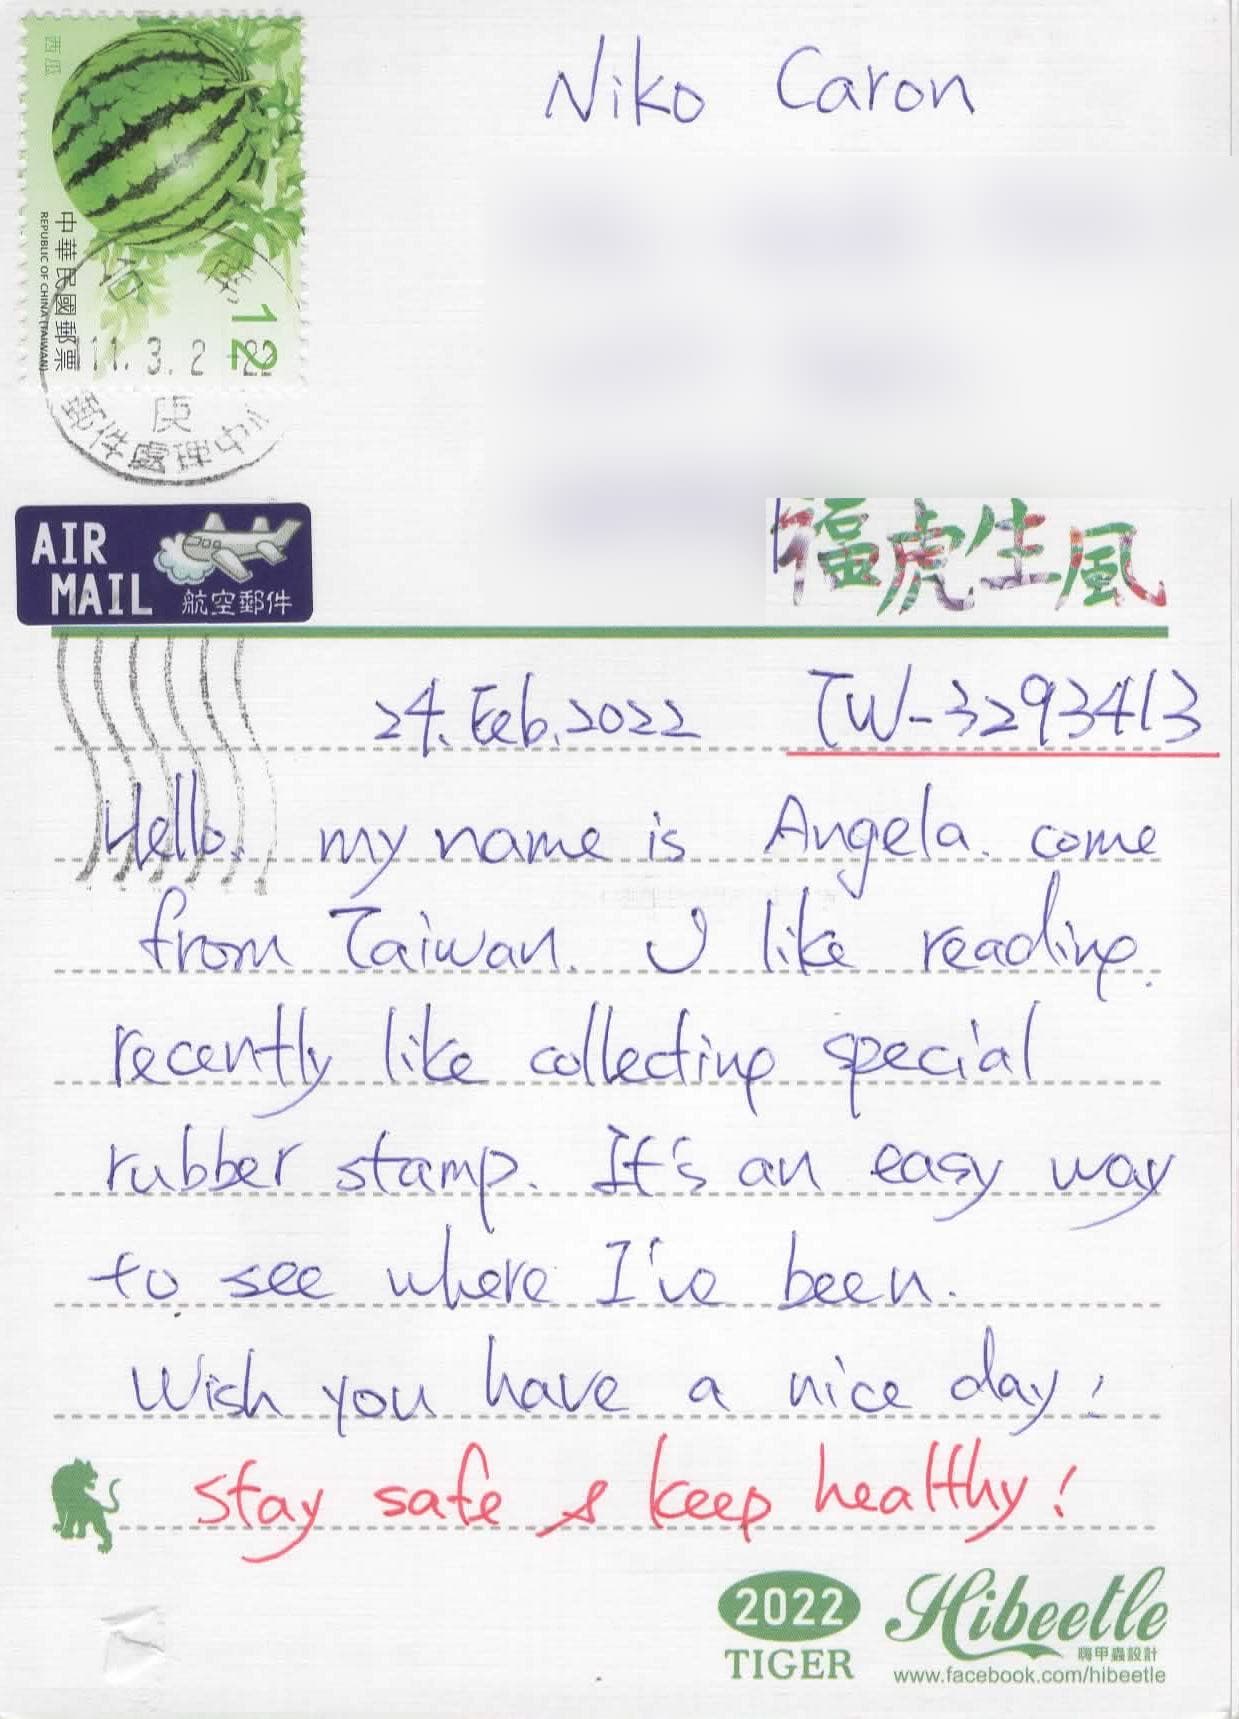 西瓜
中華民國郵票
REPUBLIC OF CHINA (TAIWAN)
12
11.3.2
郵件處理中心
Niko Caron
AIR
MAIL 航空郵件
福虎生風
24. Feb. 2022 TW-3293413
Hello, my name is Angela. come
from Taiwan. I like reading.
recently like collecting special
rubber stamp. It's an easy way
to see where I've been.
Wish you have a nice day!
stay safe & keep healthy!
2022
TIGER
Hibeetle
嗨甲蟲設計
www.facebook.com/hibeetle